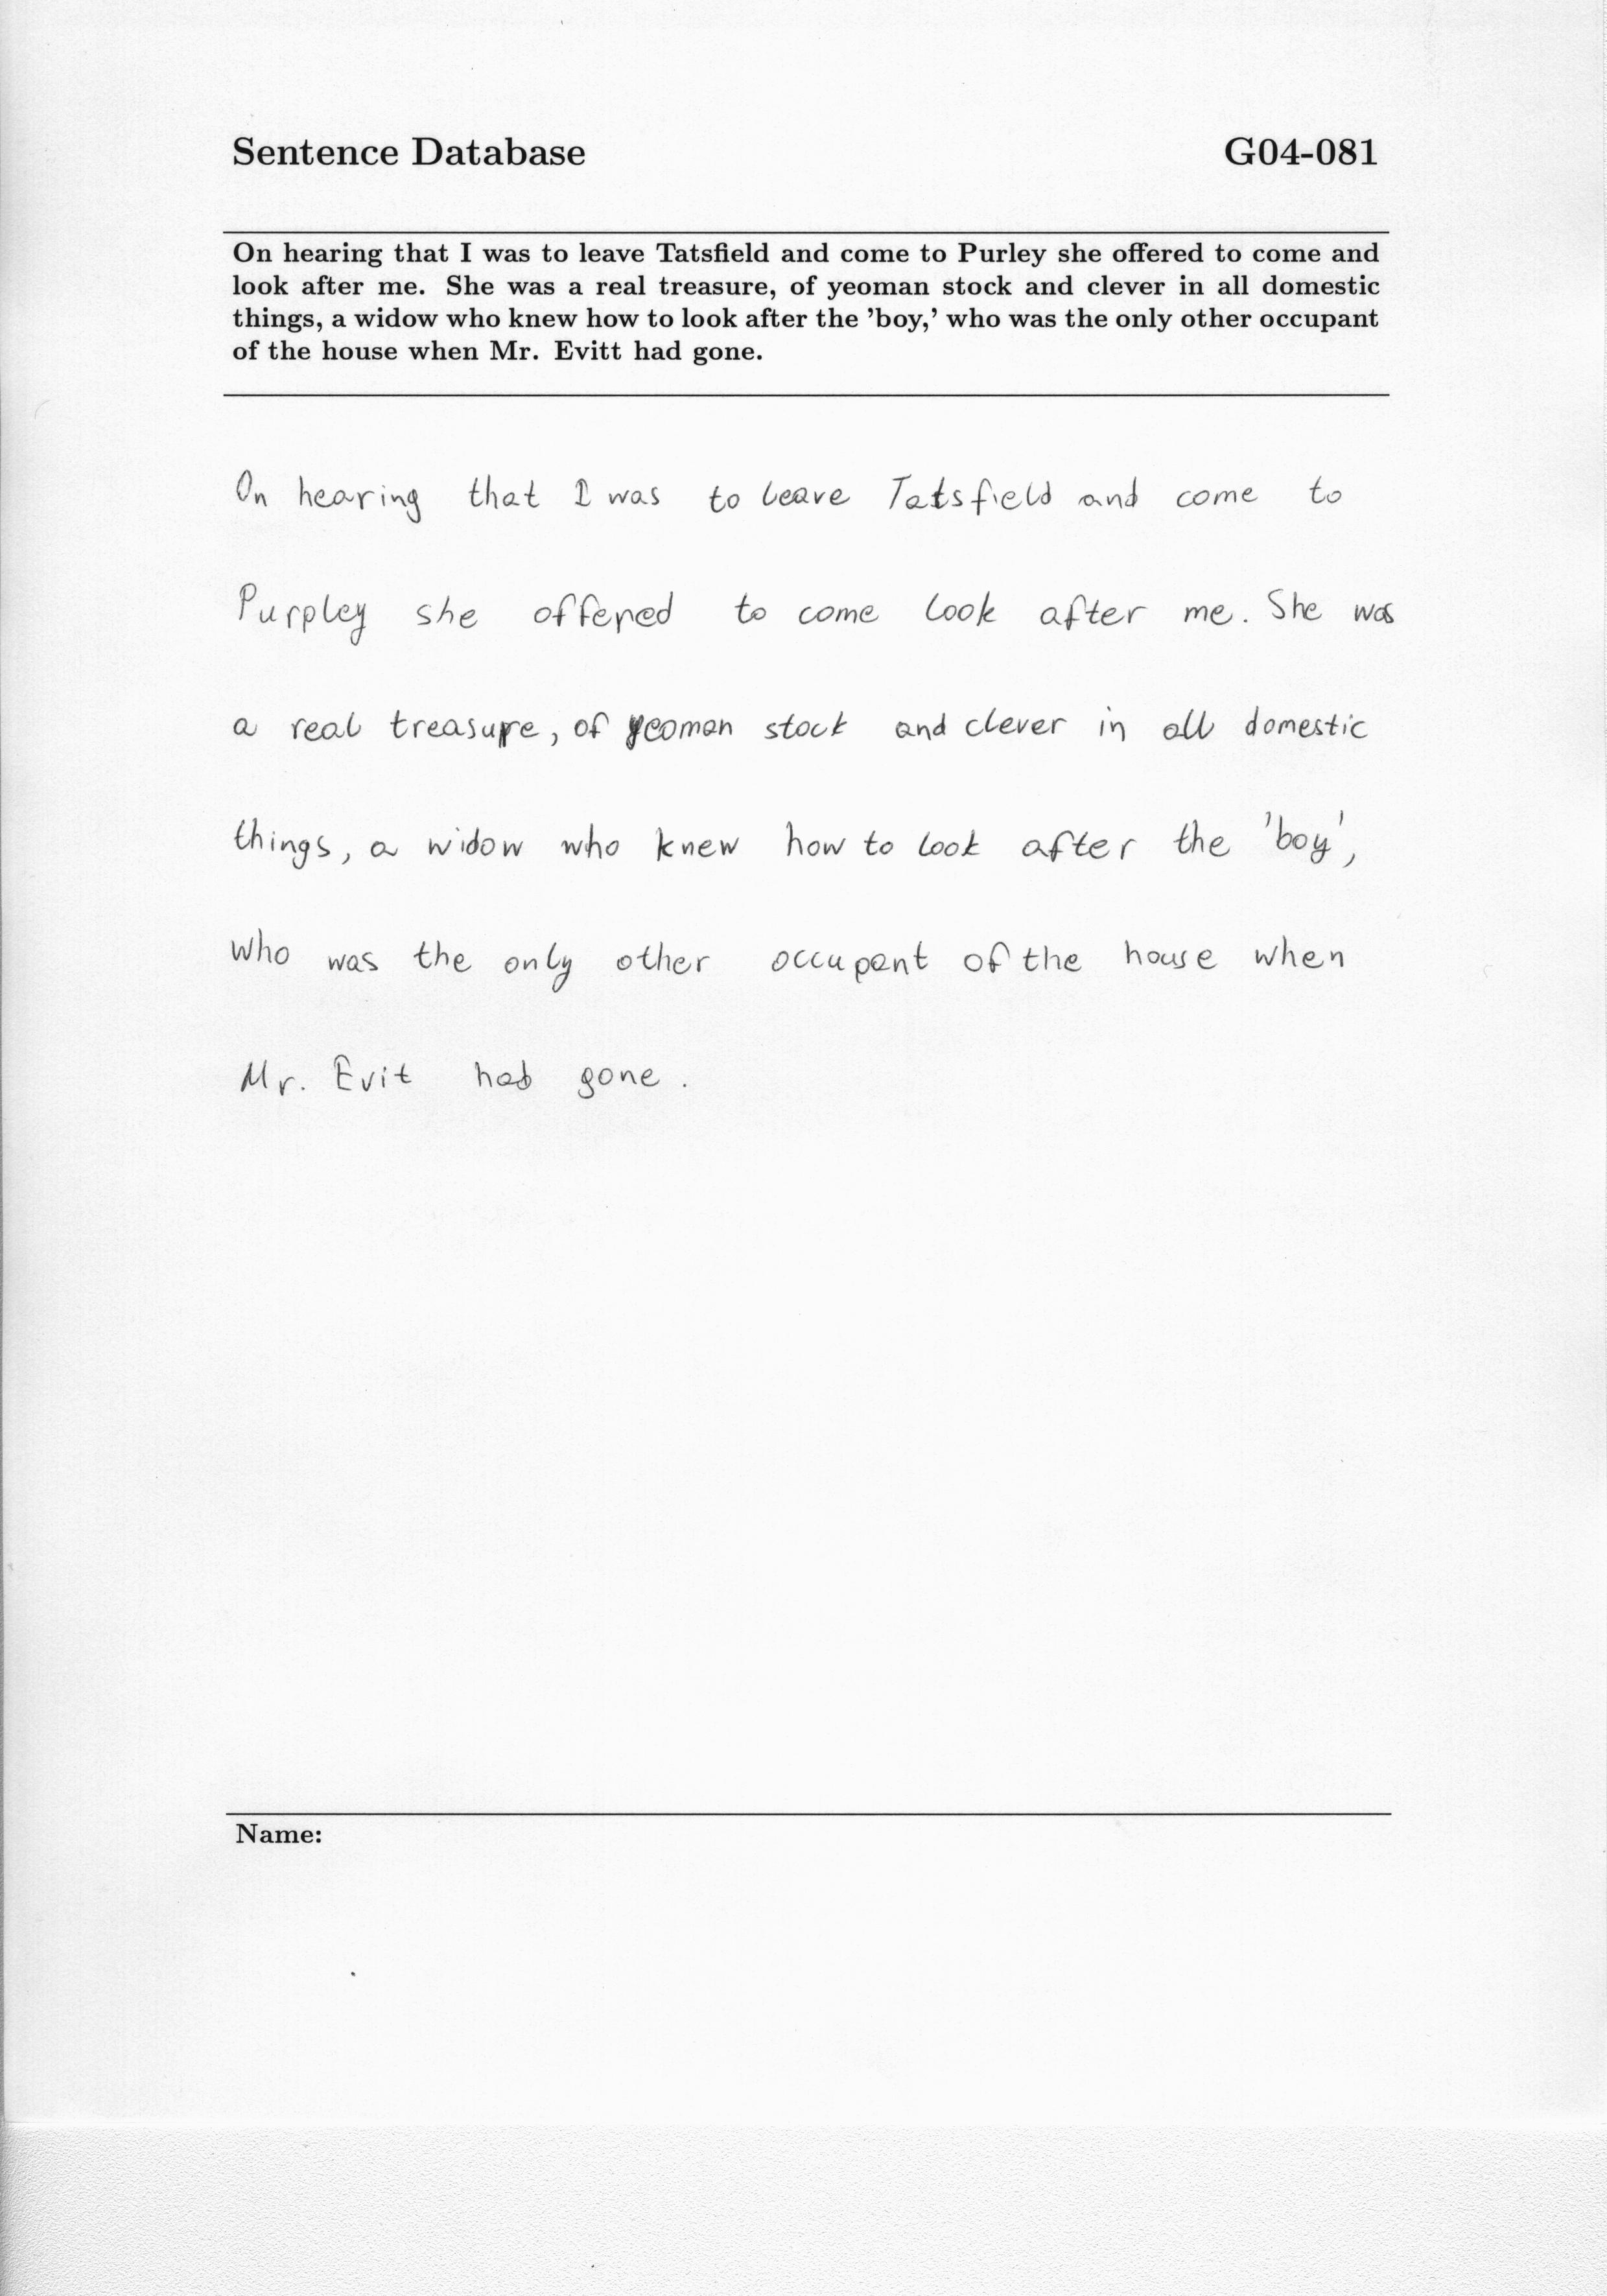 Sentence Database G04-081
On hearing that I was to leave Tatsfield and come to Purley she offered to come and
look after me. She was a real treasure, of yeoman stock and clever in all domestic
things, a widow who knew how to look after the 'boy,' who was the only other occupant
of the house when Mr. Evitt had gone.
On hearing that I was to leave Tatsfield and come to
Purpley she offered to come look after me. She was
a real treasure, of yeoman stock and clever in all domestic
things, a widow who knew how to look after the 'boy',
who was the only other occupant of the house when
Mr. Evit had gone.
Name: